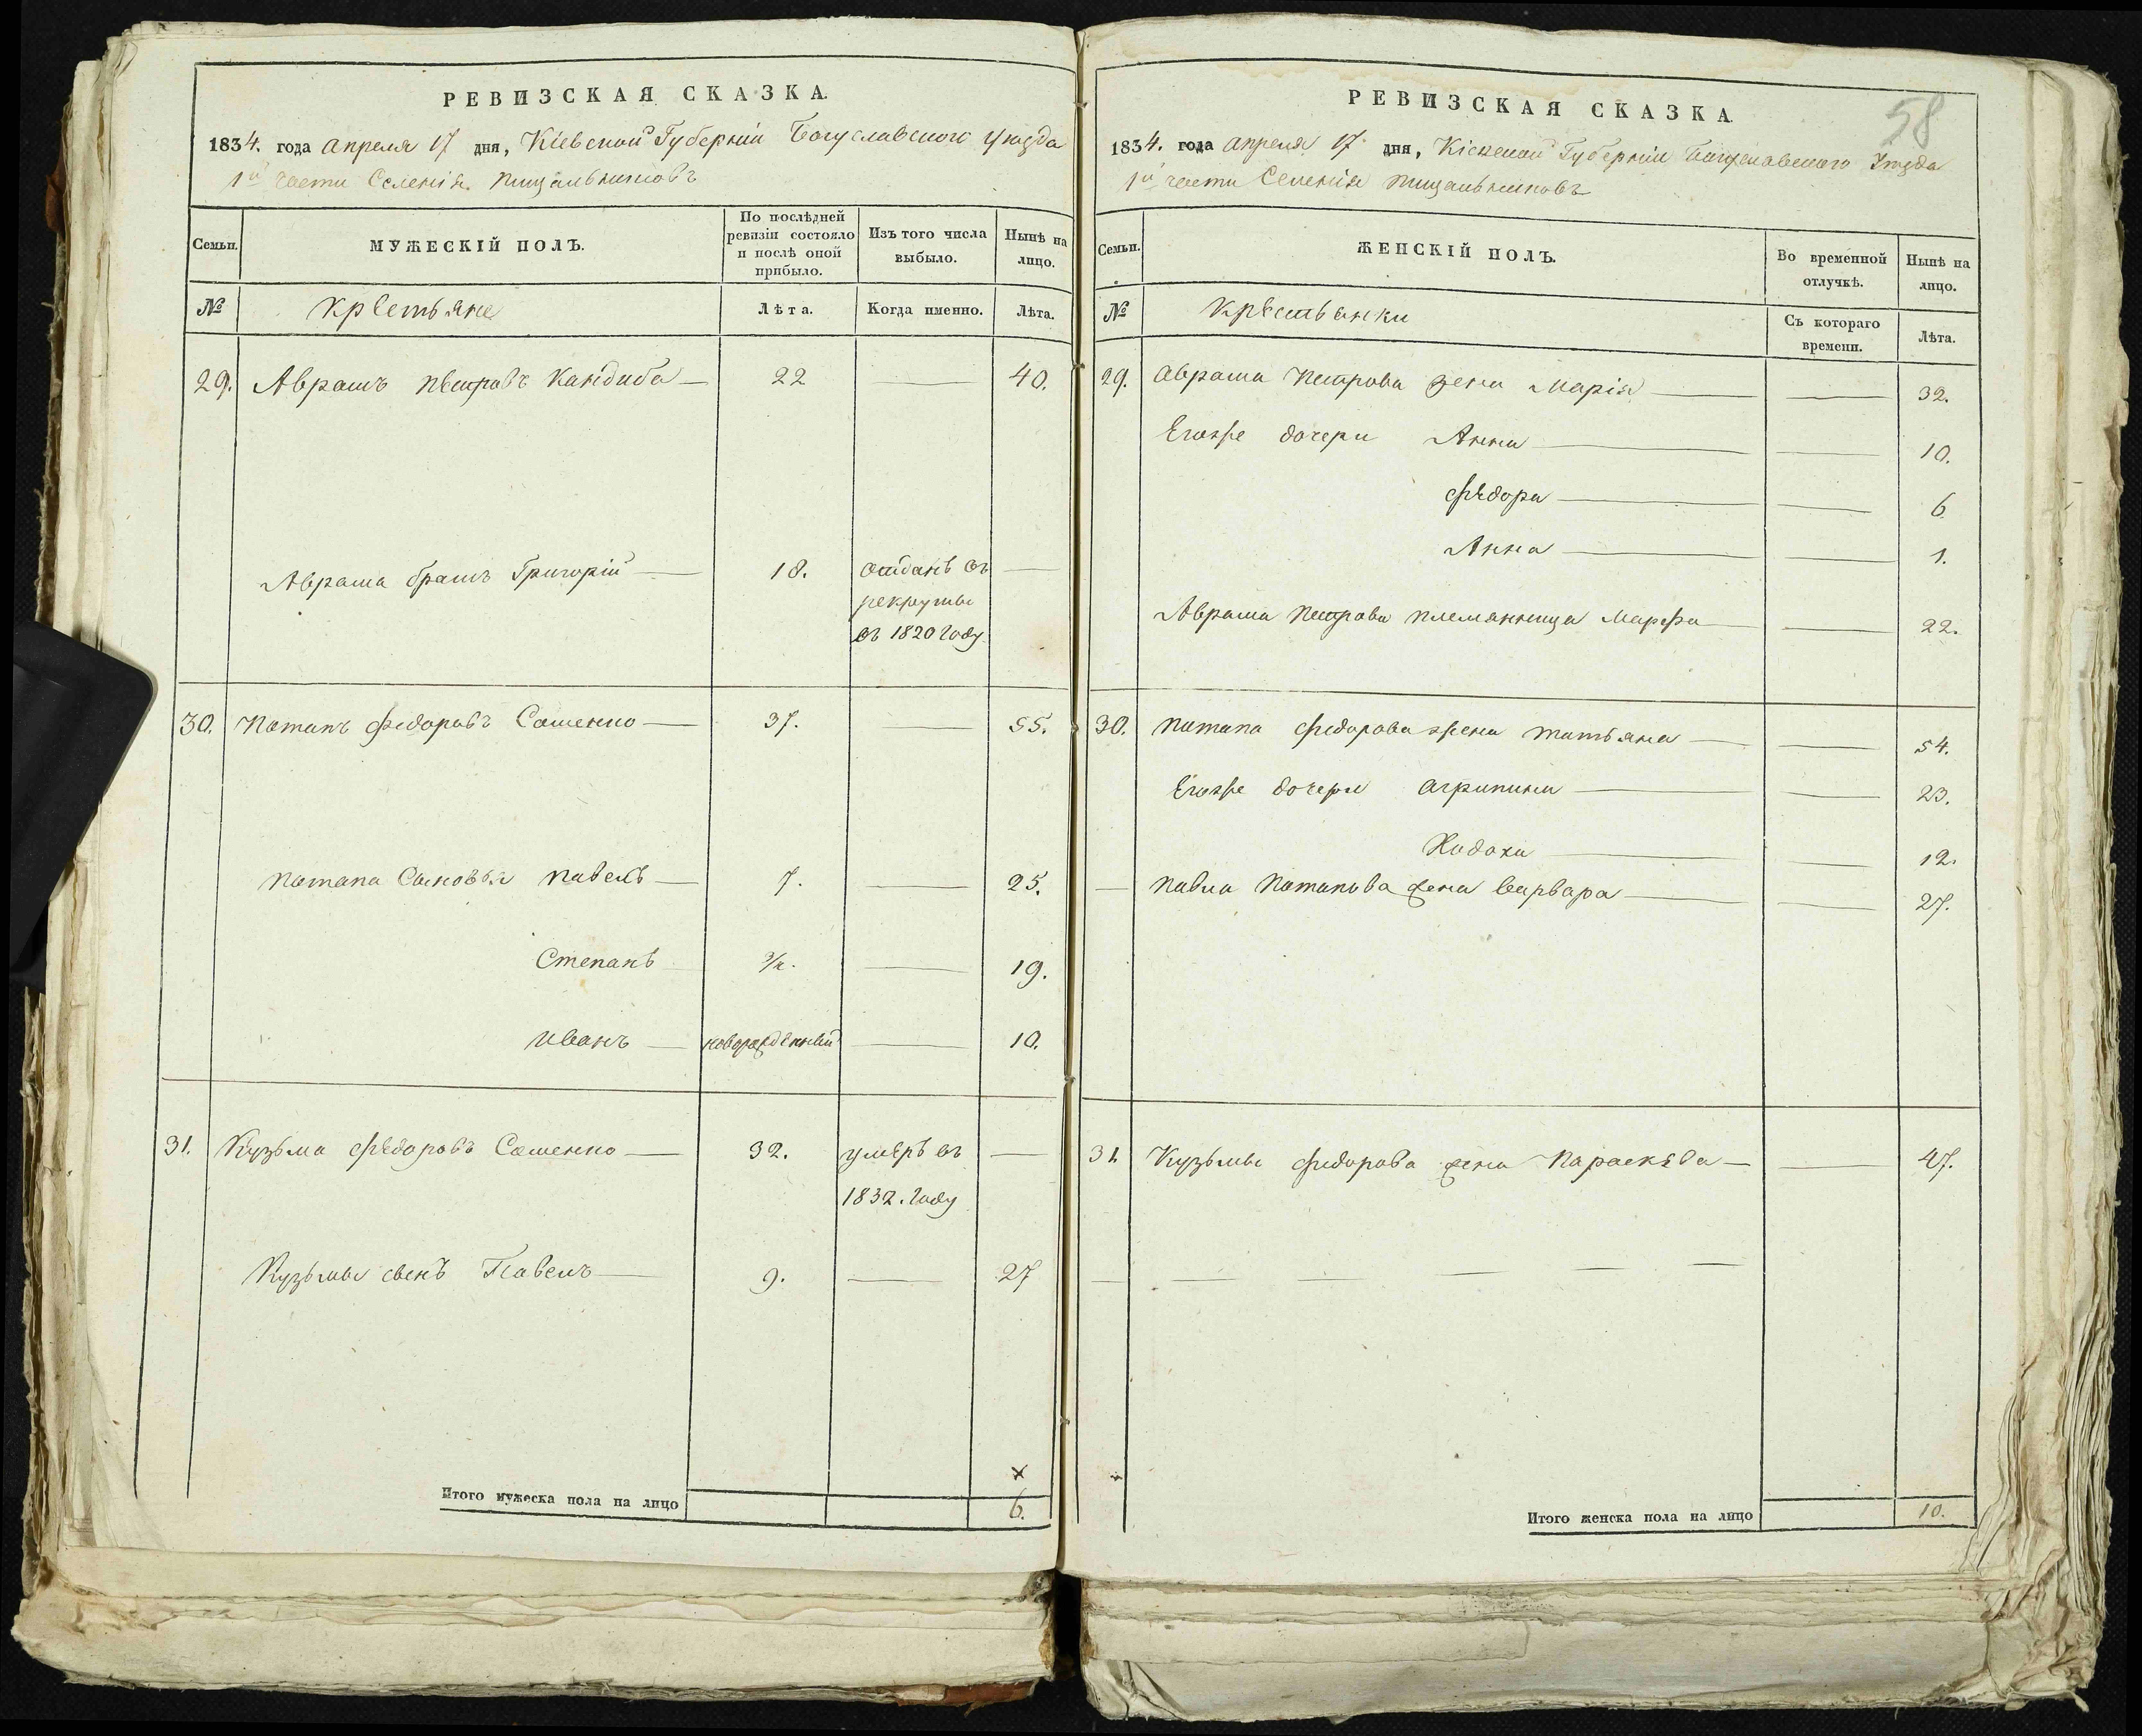 РЕВИЗСКАЯ СКАЗКА.
1834. года апреля 17 дня, Кіевской Губерніи Богуславского Уѣзда
1й части Селенія Пищальниковъ
Семьи.
МУЖЕСКІЙ ПОЛЪ.
По послѣдней ревизіи состояло и послѣ оной прибыло.
Изъ того числа выбыло.
Нынѣ на лицо.
№
Крестьяне
Лѣта.
Когда именно.
Лѣта.
29. Аврамъ Петровъ Кандиба — 22 — 40.
Аврама братъ Григорій — 18. отданъ въ —
рекруты
въ 1820 году.
30. Потапъ Федоровъ Сошенко — 37. — 55.
Потапа Сыновья Павелъ — 7. — 25.
Степанъ — 19.
Иванъ — новорожденный — 10.
31. Кузьма Федоровъ Сошенко — 32. умеръ въ —
1832. году
Кузьмы сынъ Павелъ — 9. — 27
Итого мужеска пола на лицо
6.
58
РЕВИЗСКАЯ СКАЗКА
1834. года апреля 17 дня, Кіевской Губерніи Богуславского Уѣзда
1й части Селенія Пищальниковъ
Семьи.
ЖЕНСКІЙ ПОЛЪ.
Во временной отлучкѣ.
Нынѣ на лицо.
№
Крестьянки
Съ котораго времени.
Лѣта.
29. Аврама Петрова жена Марія — — 32.
Егоже дочери Анна — — 10.
Федора — — 6
Анна — — 1.
Аврама Петрова племянница Марфа — — 22.
30. Потапа Федорова жена Татьяна — — 54.
Егоже дочери Агрипина — — 23.
— — 12.
— Павла Потапова жена Варвара — — 27.
31. Кузьмы Федорова жена Параскева — — 47.
— — — — — —
Итого женска пола на лицо
10.